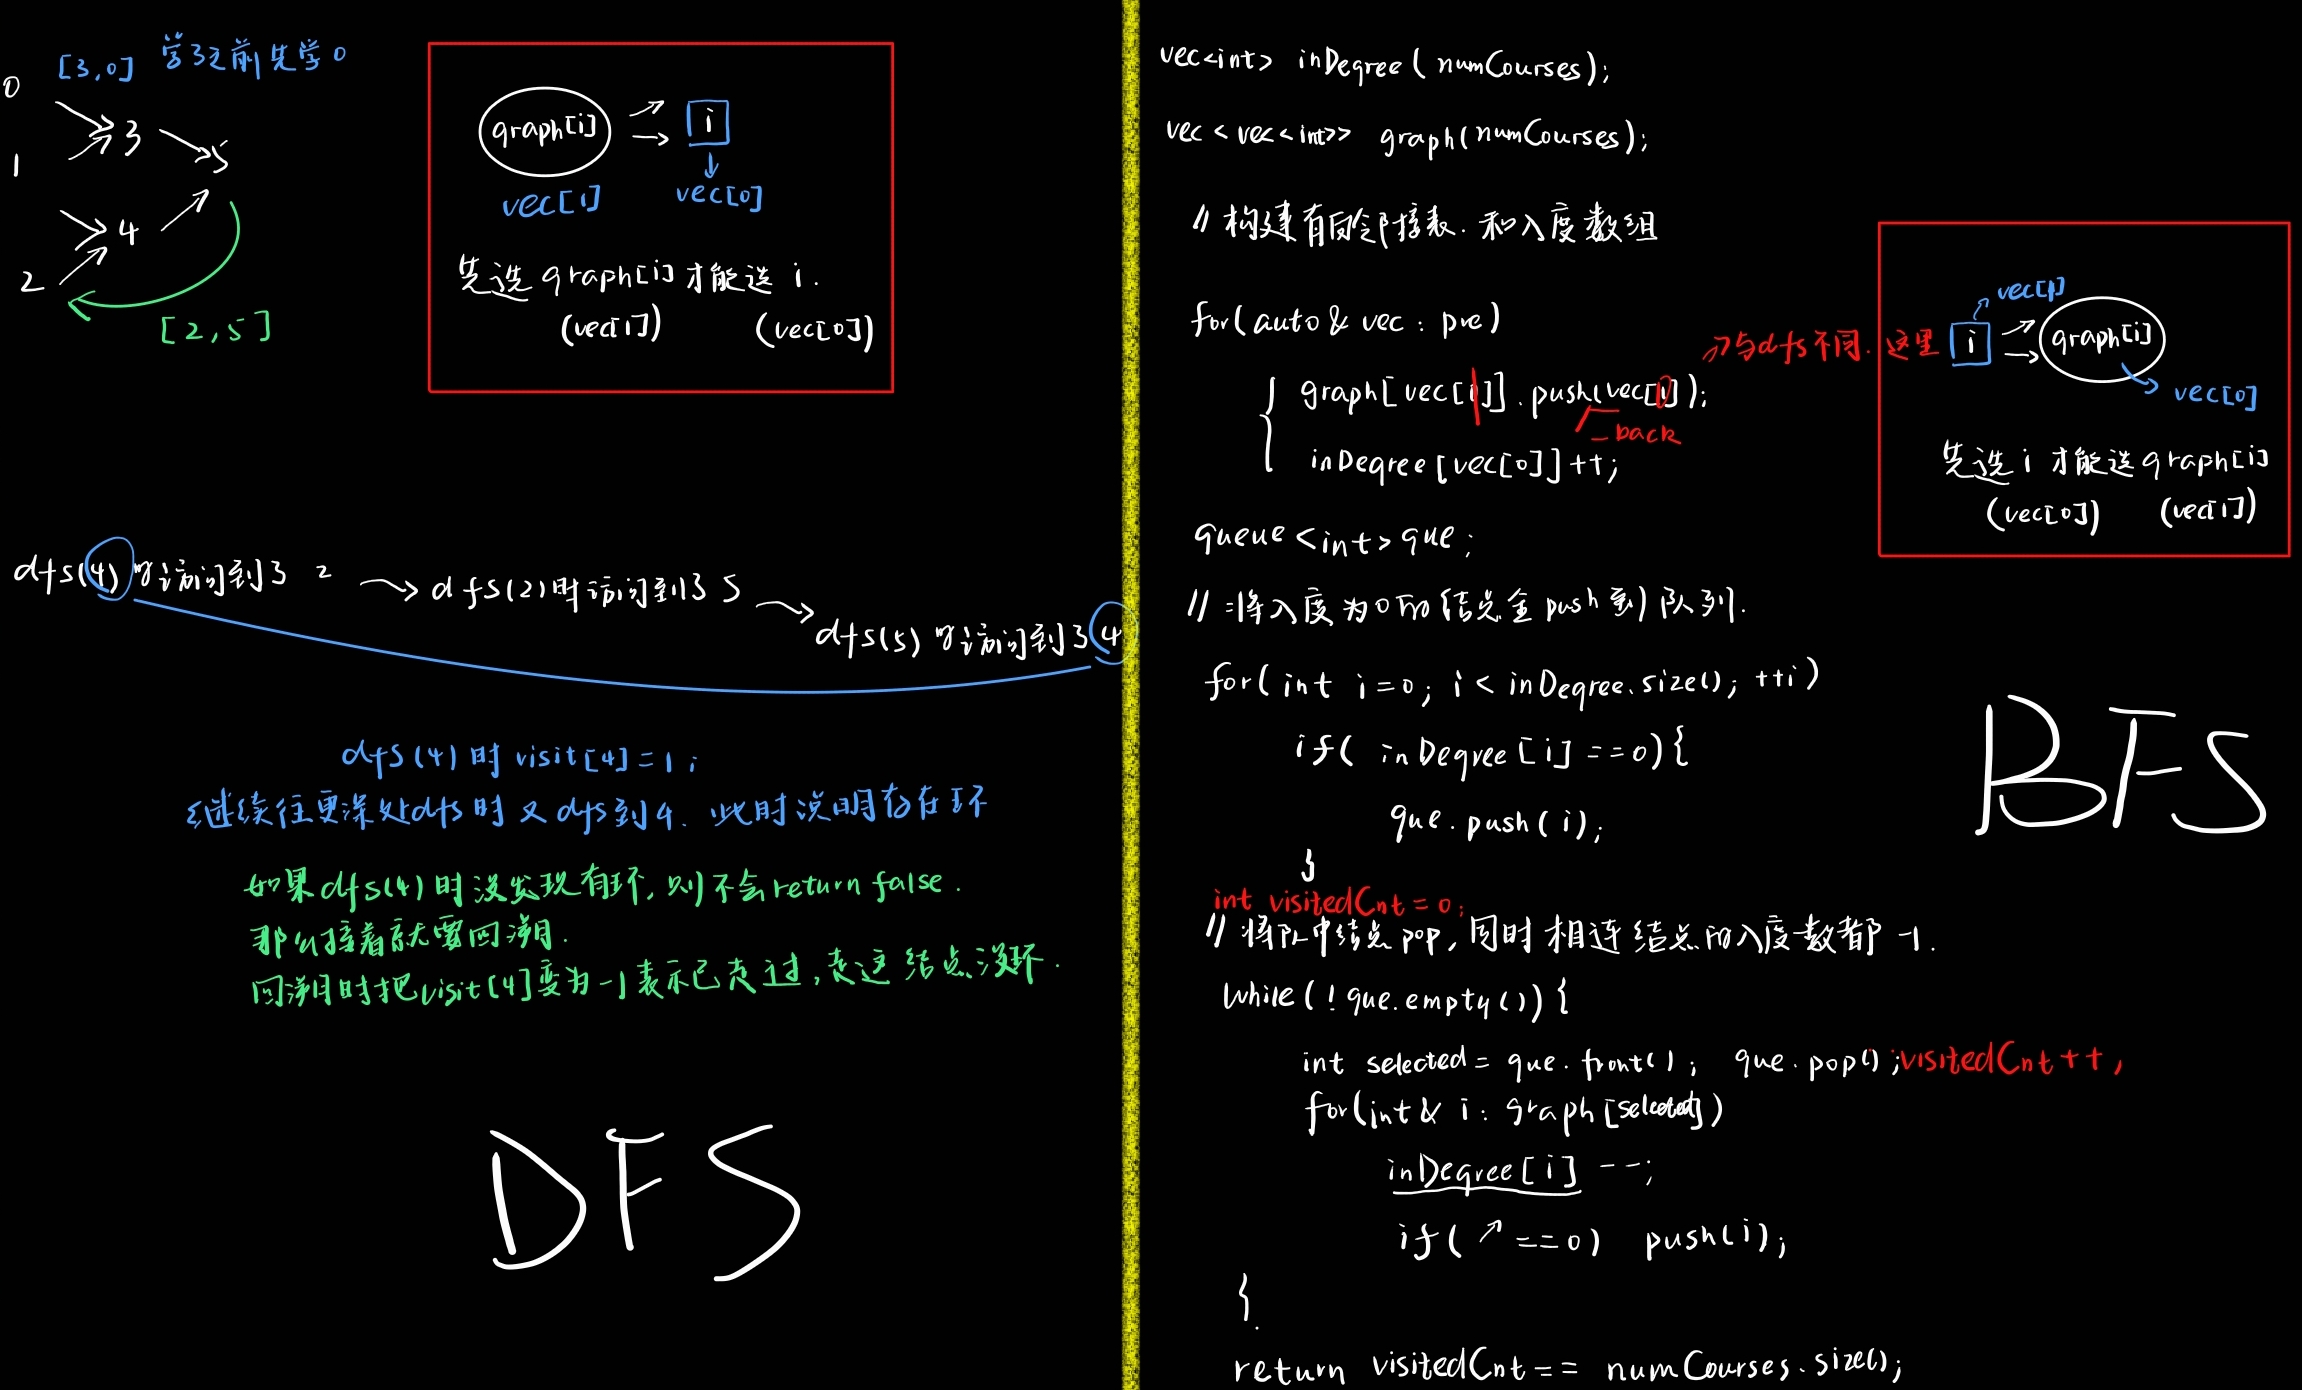 [3,0] 学3之前先学0
0
1
2
3
4
5
[2,5]
graph[i]
i
vec[1]
vec[0]
先选 graph[i] 才能选 i.
(vec[1]) (vec[0])
dfs(4)时访问到了 2
dfs(2)时访问到了5
dfs(5)时访问到了4
dfs(4)时 visit[4]=1;
继续往更深处dfs时又dfs到4. 此时说明存在环
如果dfs(4)时没发现有环,则不会return false.
那么接着就要回溯.
回溯时把visit[4]变为-1表示已走过,走这结点没环.
DFS
vec<int> inDegree(numCourses);
vec<vec<int>> graph(numCourses);
// 构建有向邻接表.和入度数组
for(auto& vec : pre)
{
graph[vec[1]].push(vec[0]);
_back
inDegree[vec[0]]++;
与dfs不同.这里
i
vec[1]
graph[i]
vec[0]
先选 i 才能选 graph[i]
(vec[0]) (vec[1])
queue<int>que;
// 将入度为0的结点全push到队列.
for(int i=0; i<inDegree.size(); ++i)
if( inDegree[i]==0){
que.push(i);
}
int visitedCnt=0;
// 将队中结点pop,同时相连结点的入度数都-1.
while(!que.empty()){
int selected=que.front(); que.pop();visitedCnt++,
for(int& i: graph[selected])
inDegree[i]--;
if(↗==0) push(i);
}
return visitedCnt== numCourses.size();
BFS